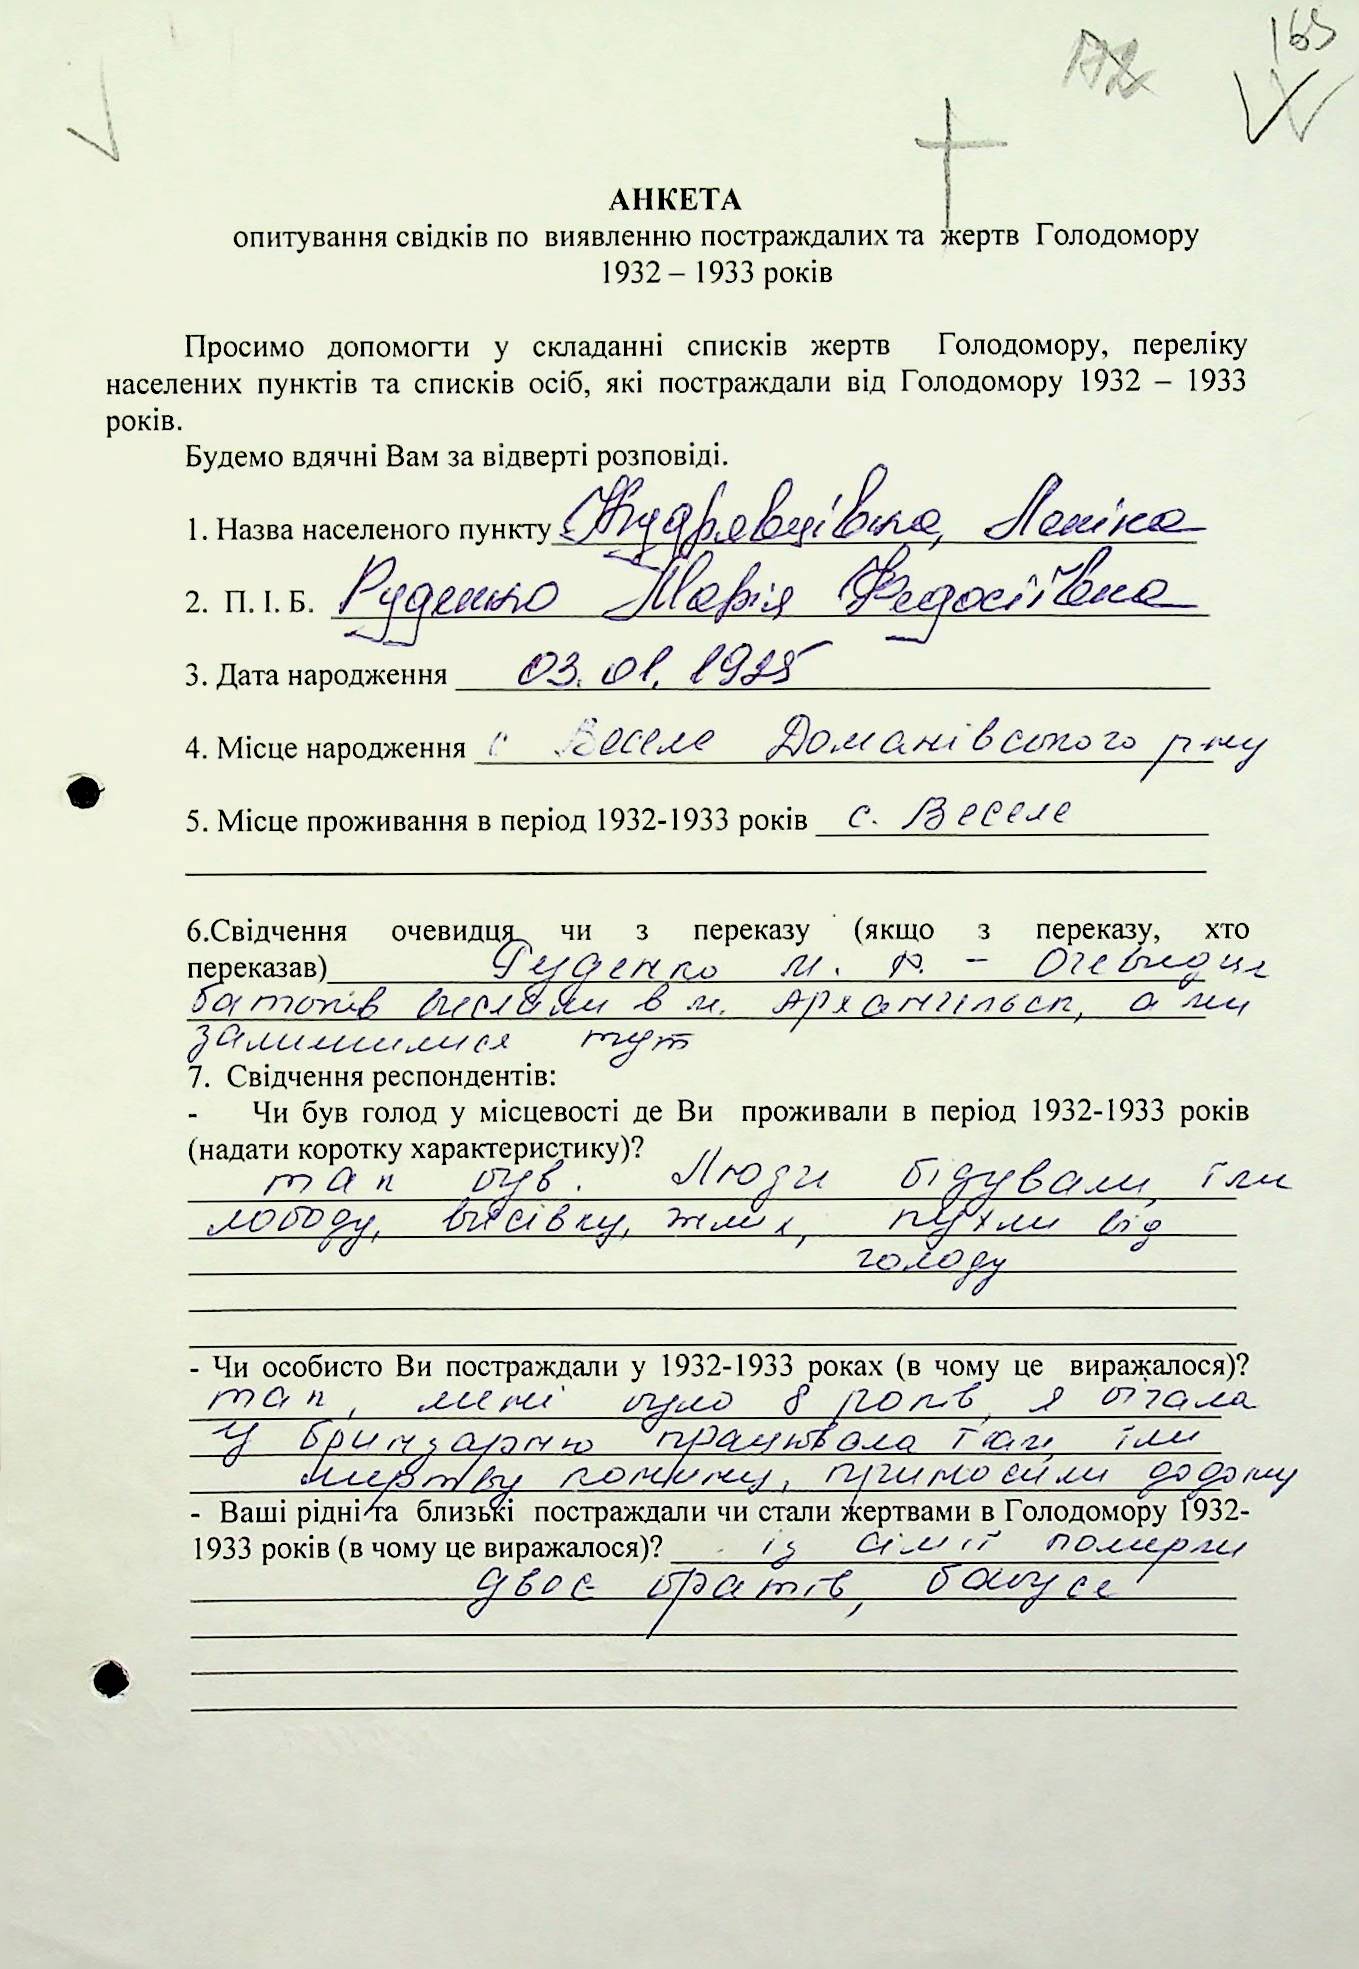 165
АНКЕТА
опитування свідків по виявленню постраждалих та жертв Голодомору
1932 – 1933 років
Просимо допомогти у складанні списків жертв Голодомору, переліку
населених пунктів та списків осіб, які постраждали від Голодомору 1932 – 1933
років.
Будемо вдячні Вам за відверті розповіді.
1. Назва населеного пункту с. Кудрявцівка,
2. П. І. Б. Руденко Марія Федосіївна
3. Дата народження 03.01.1925
4. Місце народження с Веселе Доманівського р-ну
5. Місце проживання в період 1932-1933 років с. Веселе
6.Свідчення очевидця чи з переказу (якщо з переказу, хто
переказав) Руденко М. Ф. – Очевидця
батьків вислали в м. Архангельск, а ми
залишилися тут
7. Свідчення респондентів:
- Чи був голод у місцевості де Ви проживали в період 1932-1933 років
(надати коротку характеристику)?
так був. Люди бідували, їли
лободу, висівку, жмих, пухли від
голоду
- Чи особисто Ви постраждали у 1932-1933 роках (в чому це виражалося)?
так, мені було 8 років, я бігала
у бринзарню працювала там, їли
мертву конину, приносили додому
- Ваші рідні та близькі постраждали чи стали жертвами в Голодомору 1932-
1933 років (в чому це виражалося)? із сім'ї померли
двоє братів, бабуся